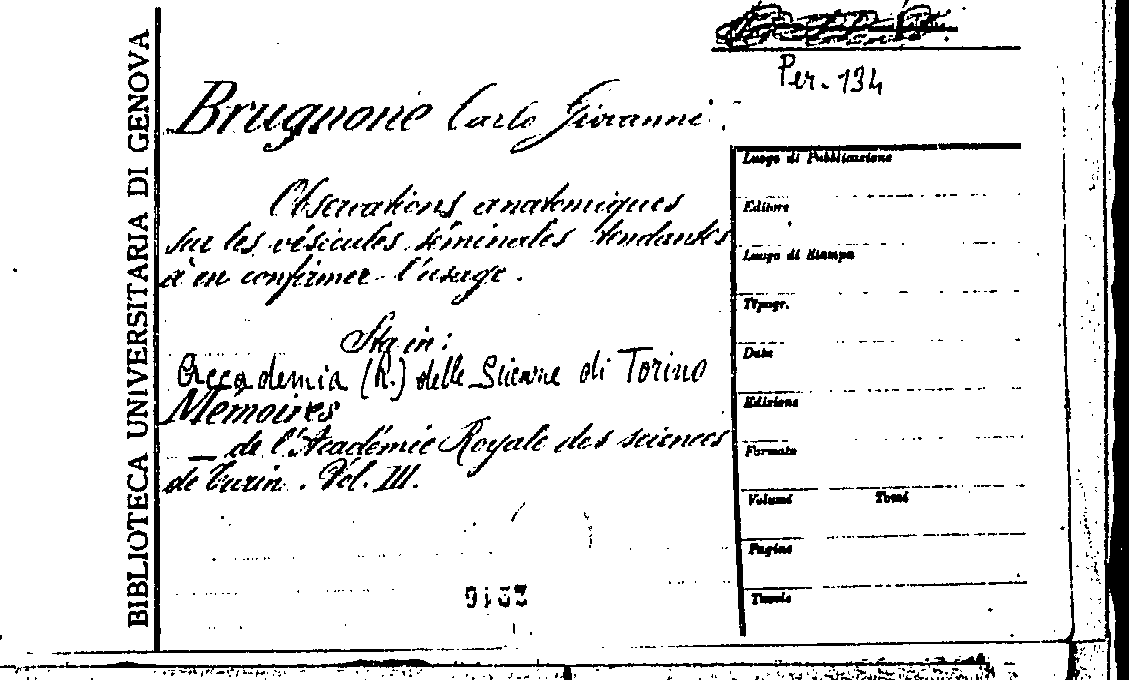 BIBLIOTECA UNIVERSITARIA DI GENOVA
Per. 134
Brugnone Carlo Giovanni.
Observations anatomiques
sur les vésicules séminales tendantes
à en confirmer l'usage.
Sta in:
Accademia (R.) delle Scienze di Torino
Mémoires
— de l'Académie Royale des sciences
de Turin. Vol. III.
Luogo di Pubblicazione
Editore
Luogo di Stampa
Tipogr.
Data
Edizione
Formato
Volumi Tomi
Pagine
Tavole